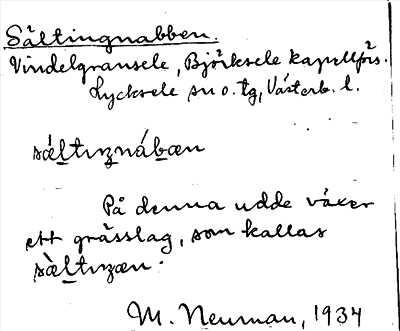 Sältingnabben.
Vindelgransele, Björksele kapellförs.
Lycksele sn o. tg, Västerb. l.
På denna udde växer
ett grässlag, som kallas
M. Neuman, 1934